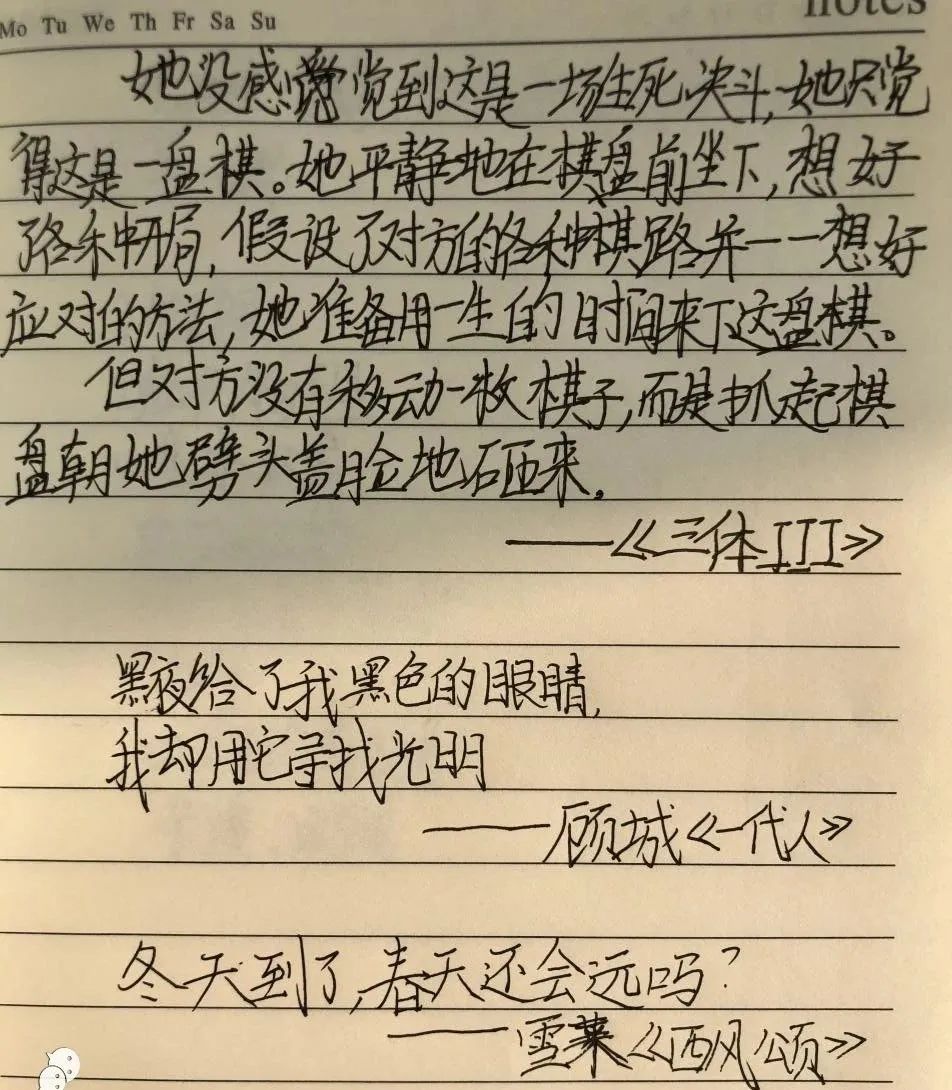 Mo Tu We Th Fr Sa Su
notes
她没感觉到这是一场生死决斗,她只觉
得这是一盘棋。她平静地在棋盘前坐下,想好
了各种开局,假设了对方的各种棋路并一一想好
应对的方法,她准备用一生的时间来下这盘棋。
但对方没有移动一枚棋子,而是抓起棋
盘朝她劈头盖脸地砸来。
——《三体III》
黑夜给了我黑色的眼睛,
我却用它寻找光明
——顾城《一代人》
冬天到了,春天还会远吗?
——雪莱《西风颂》